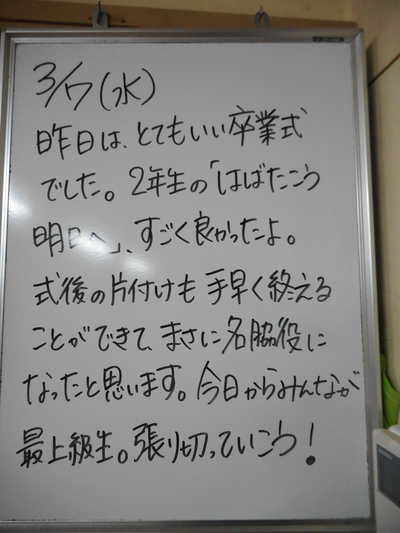 3/7(水)
昨日は、とてもいい卒業式
でした。2年生の「はばたこう
明日へ」、すごく良かったよ。
式後の片付けも手早く終える
ことができて、まさに名脇役に
なったと思います。今日からみんなが
最上級生。張り切っていこう!